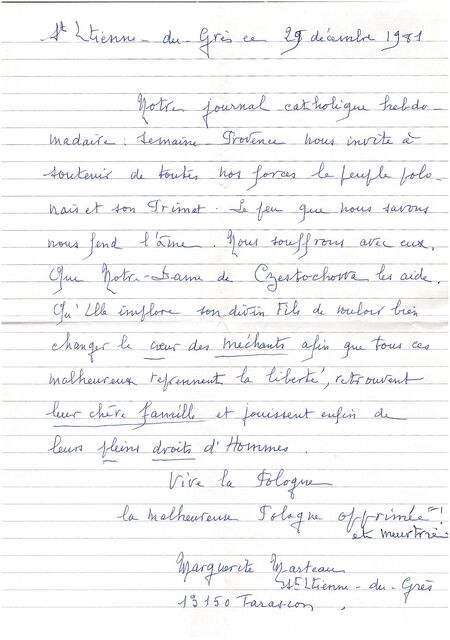 St Etienne-du-Grès ce 29 décembre 1981
Notre journal catholique hebdo-
madaire : Semaine-Provence nous invite à
soutenir de toutes nos forces le peuple polo-
nais et son Primat. Le peu que nous savons
nous fend l'âme. Nous souffrons avec eux.
Que Notre-Dame de Czestochowa les aide.
Qu'Elle implore son divin Fils de vouloir bien
changer le cœur des méchants afin que tous ces
malheureux reprennent la liberté, retrouvent
leur chère famille et jouissent enfin de
leurs pleins droits d'Hommes.
Vive la Pologne
la malheureuse Pologne opprimée !
et meurtrie
Marguerite Marteau
St Etienne-du-Grès
13150 Tarascon.